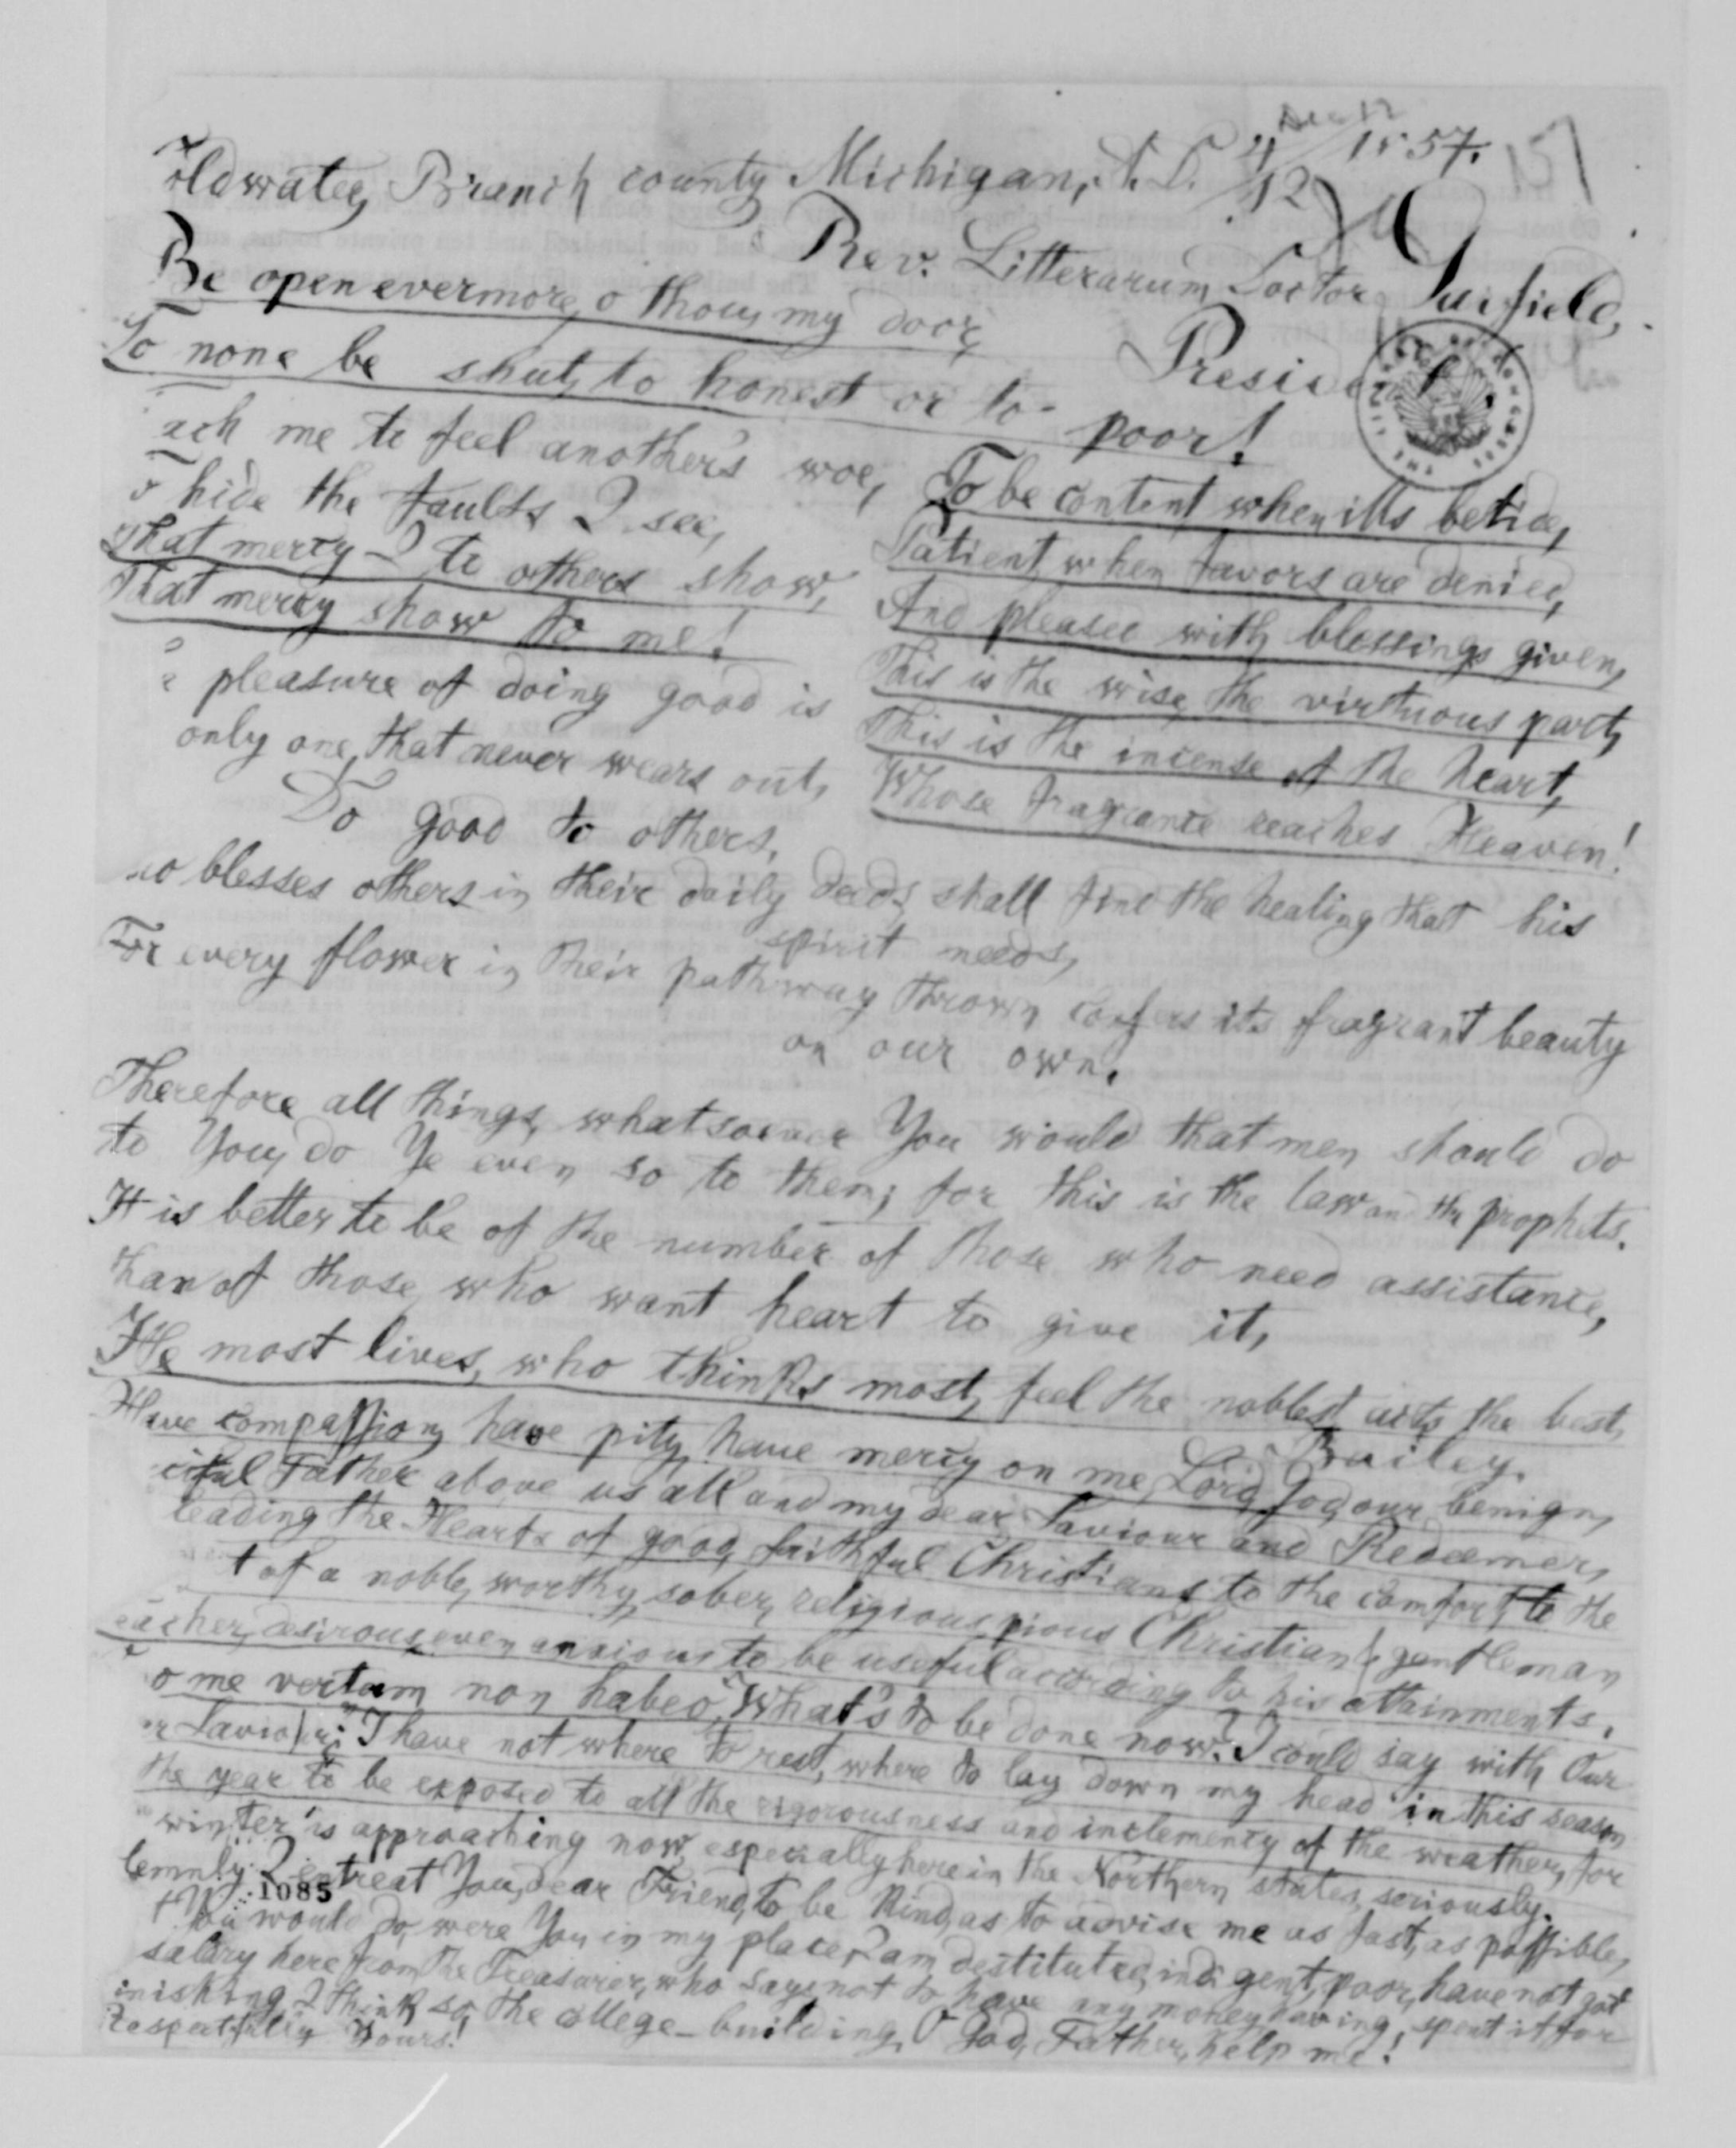 Dec 12
Coldwater, Branch county Michigan, 4/12 1857.
Rev. Litterarum Doctor Garfield,
President,
Be open evermore, o thou, my door,
To none be shut, to honest or to poor!
ach me to feel another's woe,
o hide the faults I see,
That mercy I to others show,
That mercy show to me!
e pleasure of doing good is
only one, that never wears out,
Do good to others,
To be content when ills betide,
Patient, when favors are denied,
And pleased with blessings given,
This is the wise, the virtuous part,
This is the incense of the heart,
Whose fragrance reaches Heaven!
ho blesses others in their daily deeds, shall find the healing that his
spirit needs,
For every flower in their pathway thrown, confers its fragrant beauty
on our own.
Therefore all things, whatsoever You would that men should do
to You, do Ye even so to them; for this is the law and the prophets.
It is better to be of the number of those who need assistance,
than of those, who want heart to give it,
He most lives, who thinks most, feel the noblest, acts the best,
Bailey.
Have compassion, have pity, have mercy on me, Lord, God, our benign,
ciful Father above us all and my dear Saviour and Redeemer,
leading the Hearts of good, faithful Christians to the comfort, to the
t of a noble, worthy, sober, religious, pious Christian, gentleman
eacher, desirous, even anxious to be useful according to his attainments.
o me vertam non habeo, What's to be done now? I could say with Our
r Saviour: "I have not where to rest, where to lay down my head" in this season
the year to be exposed to all the rigorousness and inclemency of the weather, for
winter is approaching now, especially here in the Northern states, seriously.
lemnly I entreat You, dear Friend, to be kind, as to advise me as fast, as possible,
t You would do, were You in my place, I am destitute, indigent, poor, have not got
salary here from the Treasurer, who says not to have any money having spent it for
inishing, I think so, the college-building, O God, Father, help me!
Respectfully Yours!
1085